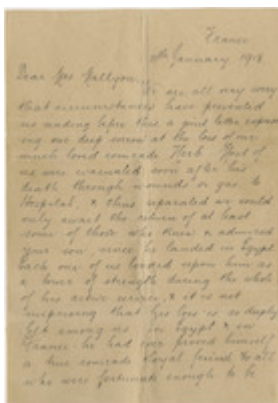 France
January 1918
Dear Mrs Hallyon,
We are all very sorry
that circumstances have prevented
us sending before this a joint letter express
ing our deep sorrow at the loss of our
much loved comrade Herb. Most of
us were evacuated soon after his
death through wounds or gas to
Hospital, & thus separated we could
only await the return of at least
some of those who knew & admired
your son, since he landed in Egypt
each one of us looked upon him as
a tower of strength during the whole
of his active service, & it is not
surprising that his loss is so deeply
felt among us in Egypt & in
France he had ever proved himself
a true comrade loyal friend to all
who were fortunate enough to be